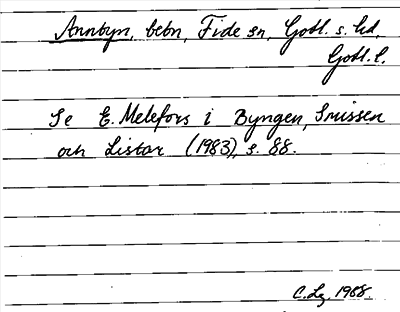 Annbyn, bebn, Fide sn, Gotl. s. hd,
Gotl. l.
Se E. Melefors i Byngen, Smissen
och Listar (1983), s. 88.
C. Lg. 1988.